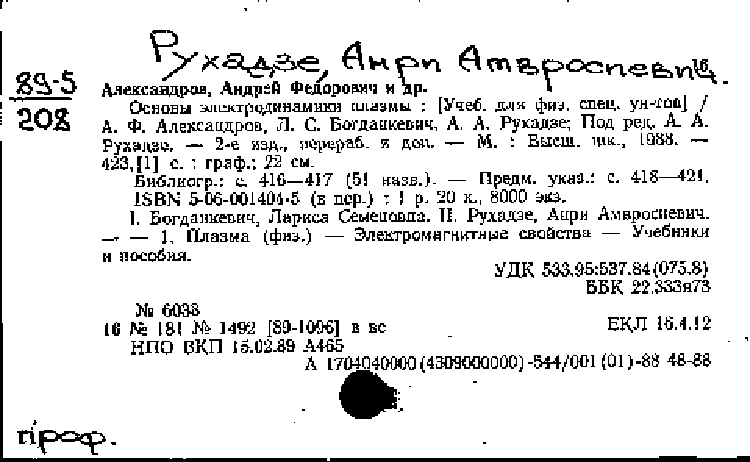 Рухадзе, Анри Амвросиевич.
16
89-5
208
Александров, Андрей Федорович и др.
Основы электродинамики плазмы : [Учеб. для физ. спец. ун-тов] /
А. Ф. Александров, Л. С. Богданкевич, А. А. Рухадзе; Под ред. А. А.
Рухадзе. — 2-е изд., перераб. и доп. — М. : Высш. шк., 1988. —
423,[1] с. : граф.; 22 см.
Библиогр.: с. 416—417 (51 назв.). — Предм. указ.: с. 418—421.
ISBN 5-06-001404-5 (в пер.) : 1 р. 20 к., 8000 экз.
I. Богданкевич, Лариса Семеновна. II. Рухадзе, Анри Амвросиевич.
— — 1. Плазма (физ.) — Электромагнитные свойства — Учебники
и пособия.
УДК 533.95:537.84(075.8)
ББК 22.333я73
№ 6038
16 № 181 № 1492 [89-1096] в вс
ЕКЛ 16.4.12
НПО ВКП 15.02.89 А465
А 1704040000(4309000000)-544/001(01)-88 48-88
проф.